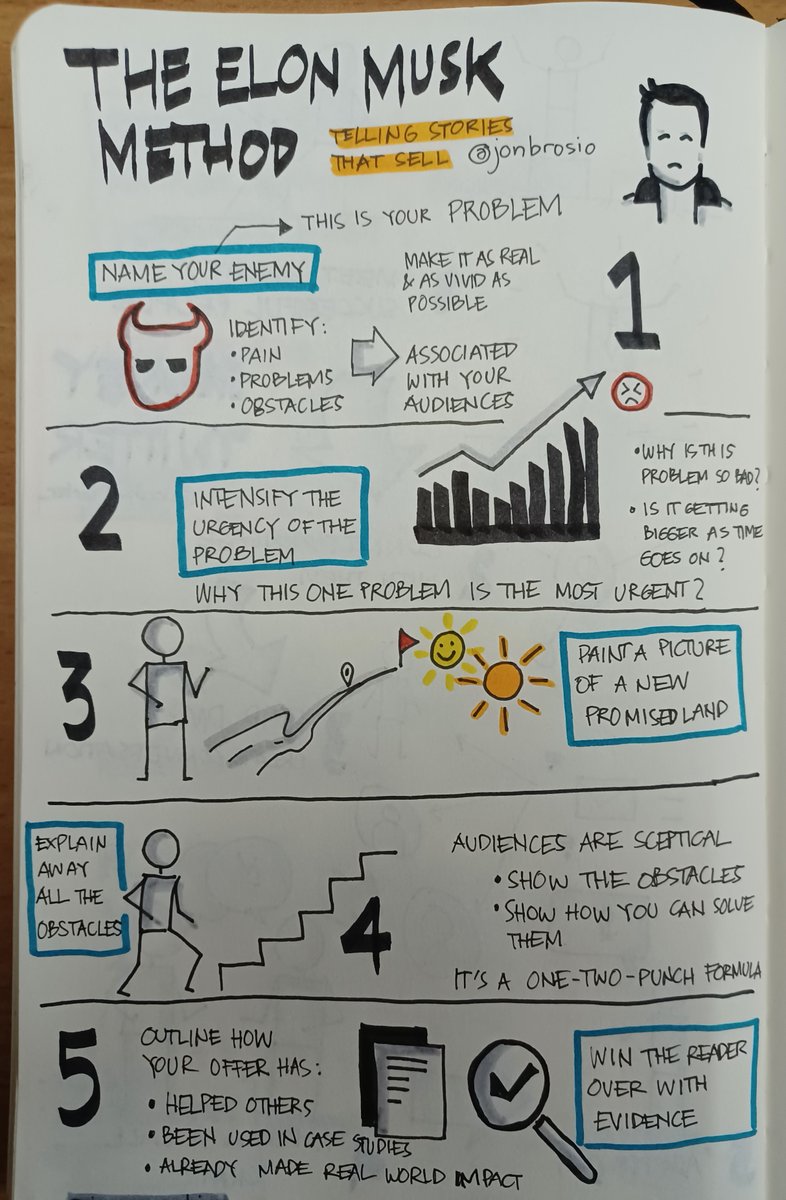 THE ELON MUSK
METHOD
TELLING STORIES
THAT SELL
@jonbrosio
THIS IS YOUR PROBLEM
NAME YOUR ENEMY
MAKE IT AS REAL
& AS VIVID AS
POSSIBLE
1
IDENTIFY:
• PAIN
• PROBLEMS
• OBSTACLES
ASSOCIATED
WITH YOUR
AUDIENCES
2
INTENSIFY THE
URGENCY OF THE
PROBLEM
• WHY IS THIS
PROBLEM SO BAD?
• IS IT GETTING
BIGGER AS TIME
GOES ON?
WHY THIS ONE PROBLEM IS THE MOST URGENT?
3
PAINT A PICTURE
OF A NEW
PROMISED LAND
EXPLAIN
AWAY
ALL THE
OBSTACLES
4
AUDIENCES ARE SCEPTICAL
• SHOW THE OBSTACLES
• SHOW HOW YOU CAN SOLVE
THEM
IT'S A ONE-TWO-PUNCH FORMULA
5
OUTLINE HOW
YOUR OFFER HAS:
• HELPED OTHERS
• BEEN USED IN CASE STUDIES
• ALREADY MADE REAL WORLD IMPACT
WIN THE READER
OVER WITH
EVIDENCE